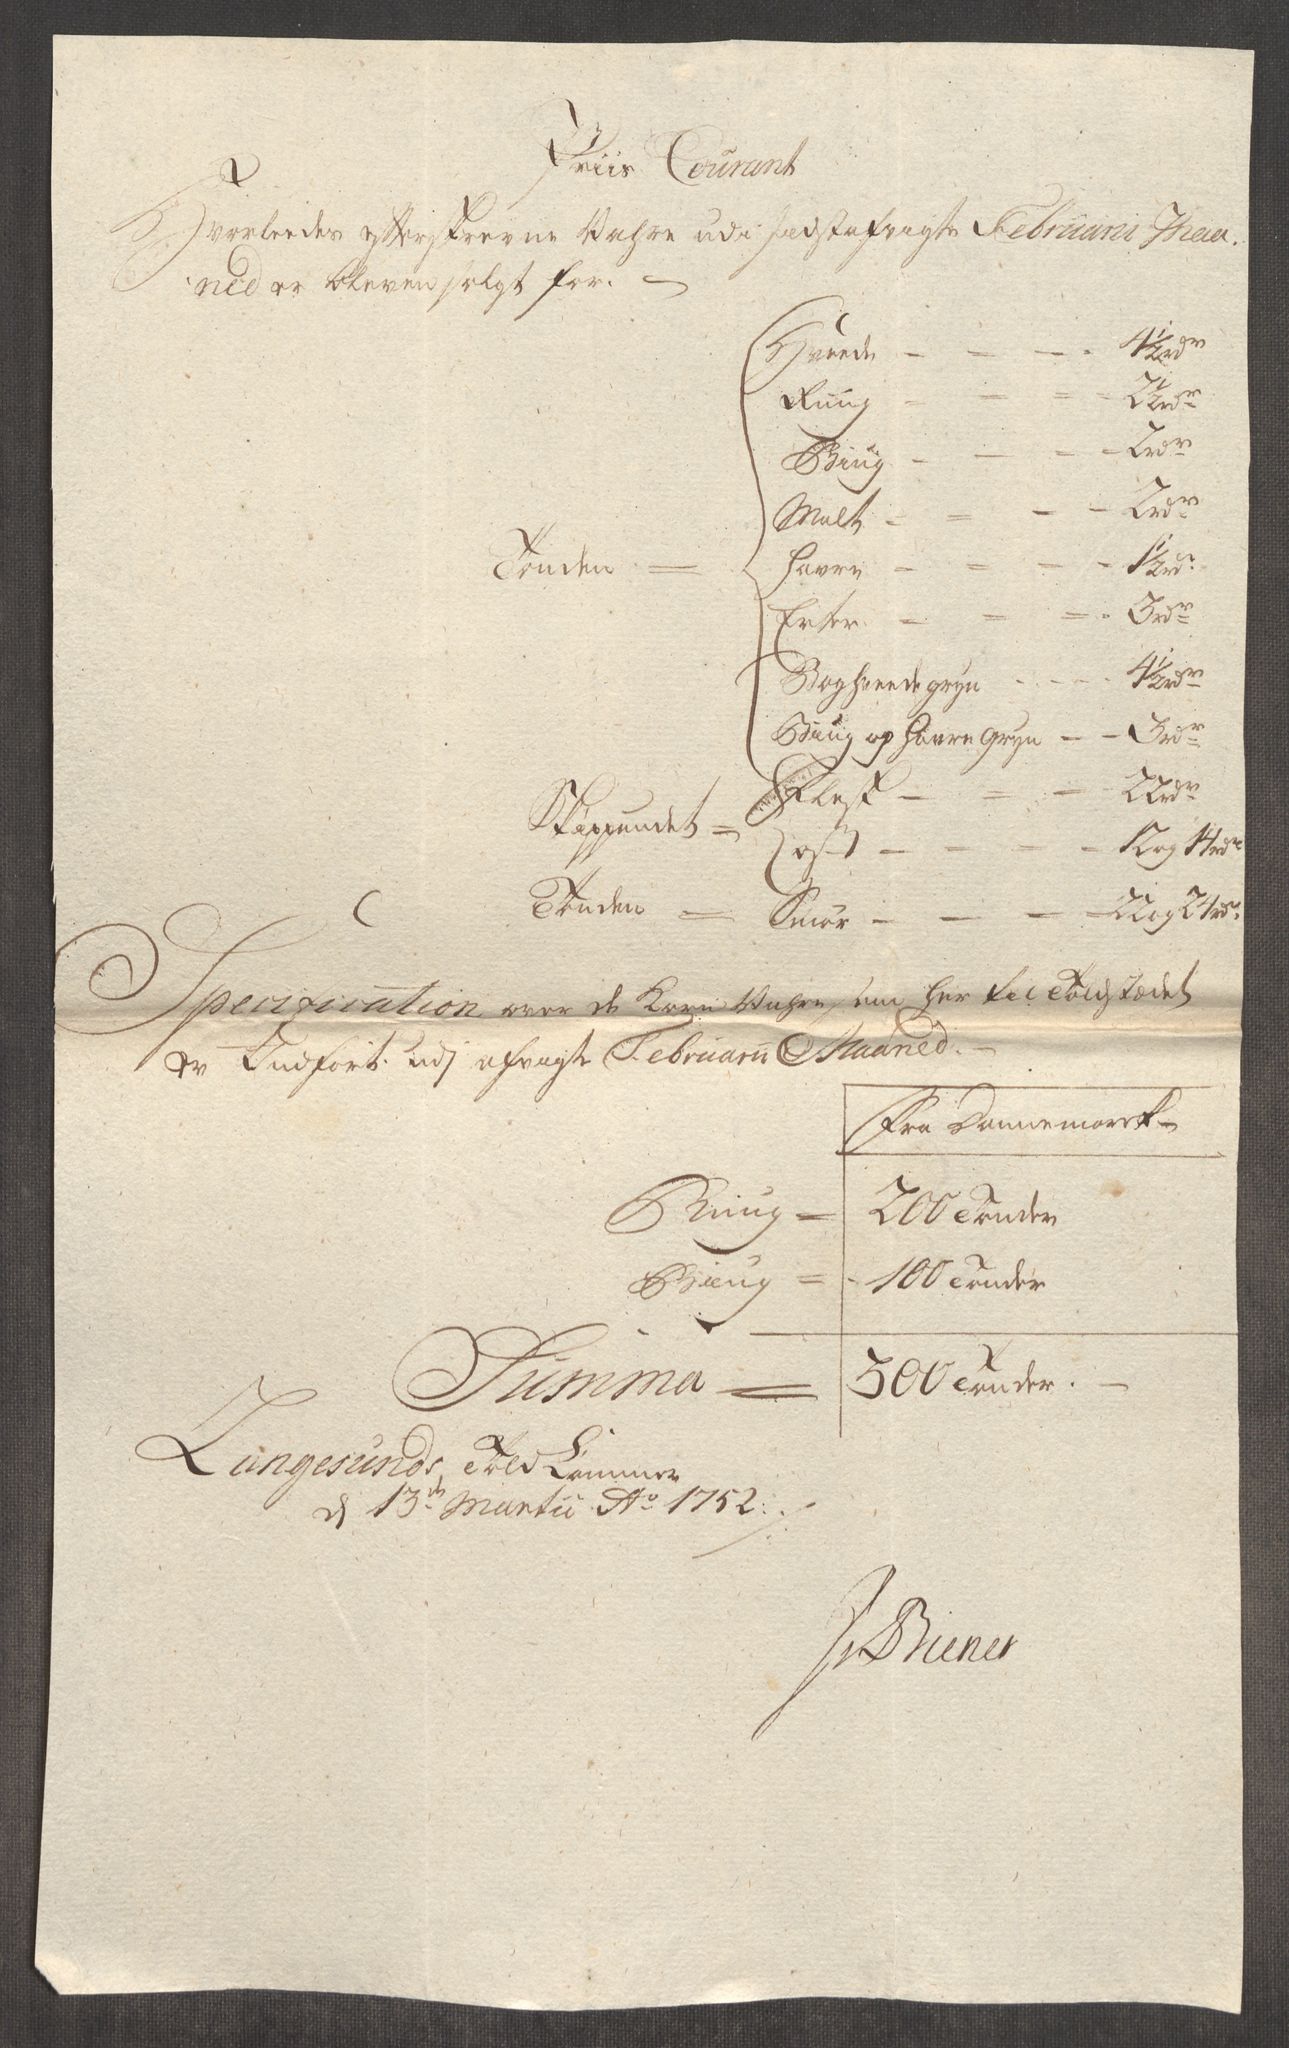 Priis Courant
Hvorleedes efterskrevne Vahre udi sidstafvigte Februarii Maa-
ned er bleven solgt for.
Hveede - - - - 4 1/2 rdr
Ruug - - - - 2 1/2 rdr
Biug - - - - 2 rdr
Malt - - - - 2 rdr
Tønden = Havre - - - - 1 1/2 rdr
Erter - - - - 3 rdr
Boghveede gryn - - - - 4 1/2 rdr
Biug og Havre Gryn - - 3 rdr
Flesk - - - 22 rdr
Skippundet = Ost - - - - 12 og 14 rdr
Tønden = Smør - - - - 22 og 24 rdr
Specification over de Korn Vahre, som her til Toldstædet
er Indført udj afvigte Februarii Maaned. -
Fra Dannemarck
Ruug = 200 Tønder
Biug = 100 Tønder
Summa = 300 Tønder. -
Langesunds Told Cammer
d 13de Martii Ao 1752
Biener